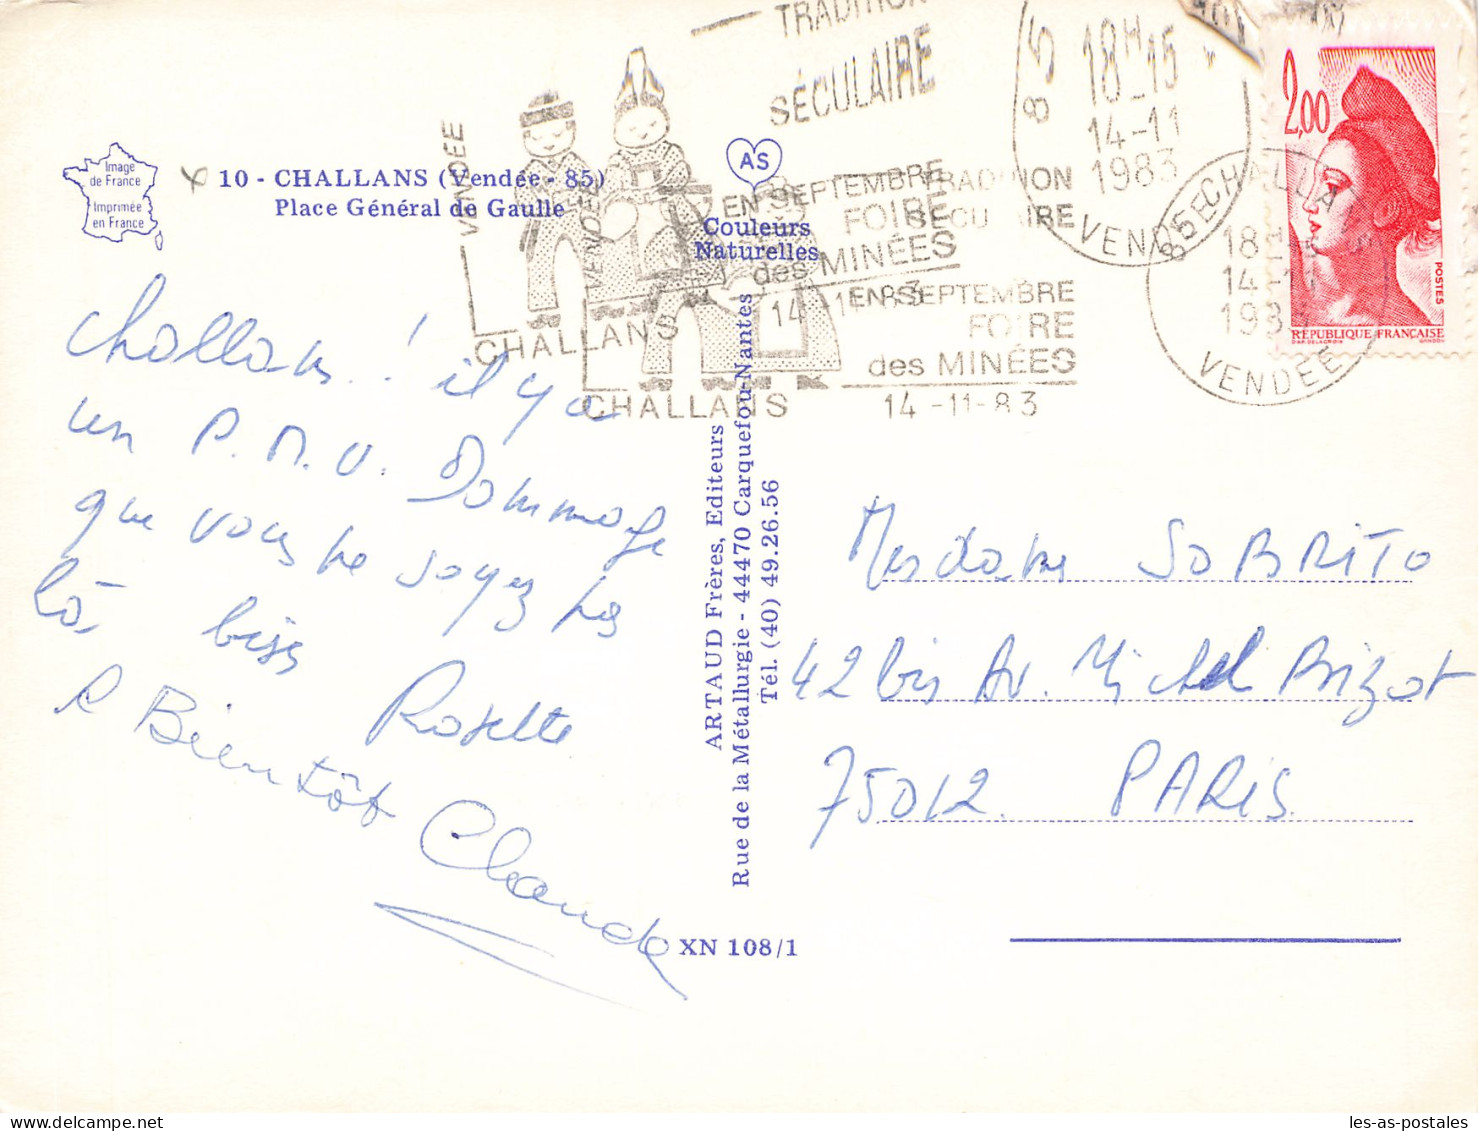 TRADITION
SÉCULAIRE
18H-15
14-11
1983
VENDÉE
2,00
POSTES
RÉPUBLIQUE FRANÇAISE
85 CHALLANS
18H15
14-11
1983
VENDEE
VENDÉE
VENDÉE
EN SEPTEMBRE
FOIRE
des MINÉES
14-11-83
CHALLANS
TRADITION
SÉCULAIRE
EN SEPTEMBRE
FOIRE
des MINÉES
14-11-83
CHALLANS
Image
de France
Imprimée
en France
10 - CHALLANS (Vendée - 85)
Place Général de Gaulle
AS
Couleurs
Naturelles
Challans ! il y a
un P.M.U. Dommage
que vous ne soyez pas
là. bises
Rosette
A Bientôt
Claude
ARTAUD Frères, Editeurs
Rue de la Métallurgie - 44470 Carquefou-Nantes
Tél. (40) 49.26.56
XN 108/1
Madame SOBRITO
42 bis Av. Michel Bizot
75012 PARIS
les-as-postales